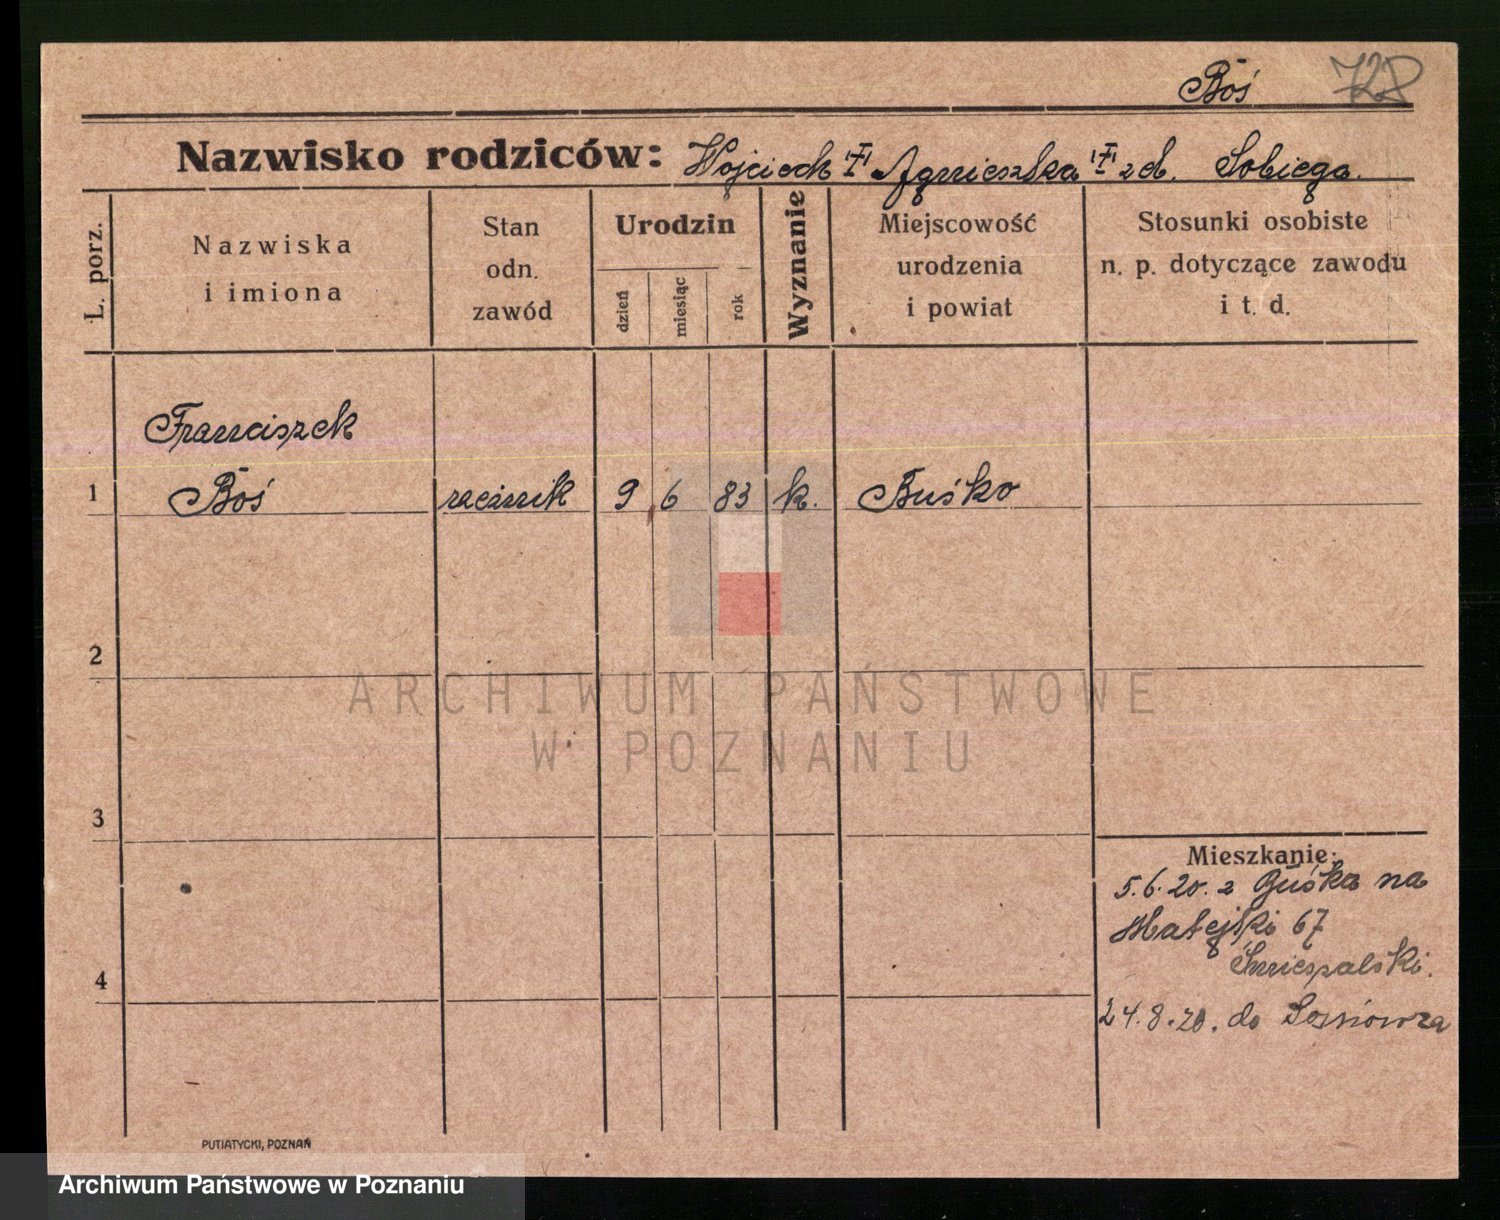 Boś 728
Nazwisko rodziców: Wojciech "I" Agnieszka "I" zd. Sobiega.
L. porz.
Nazwiska
i imiona
Stan
odn.
zawód
Urodzin
dzień
miesiąc
rok
Wyznanie
Miejscowość
urodzenia
i powiat
Stosunki osobiste
n. p. dotyczące zawodu
i t. d.
Franciszek
1 Boś rzeźnik 9 6 83 k. Buśko
2
3
4
Mieszkanie:
5.6.20. z Buśka na
Matejki 67
24.8.20. do
PUTIATYCKI, POZNAŃ
ARCHIWUM PAŃSTWOWE
W POZNANIU
Archiwum Państwowe w Poznaniu